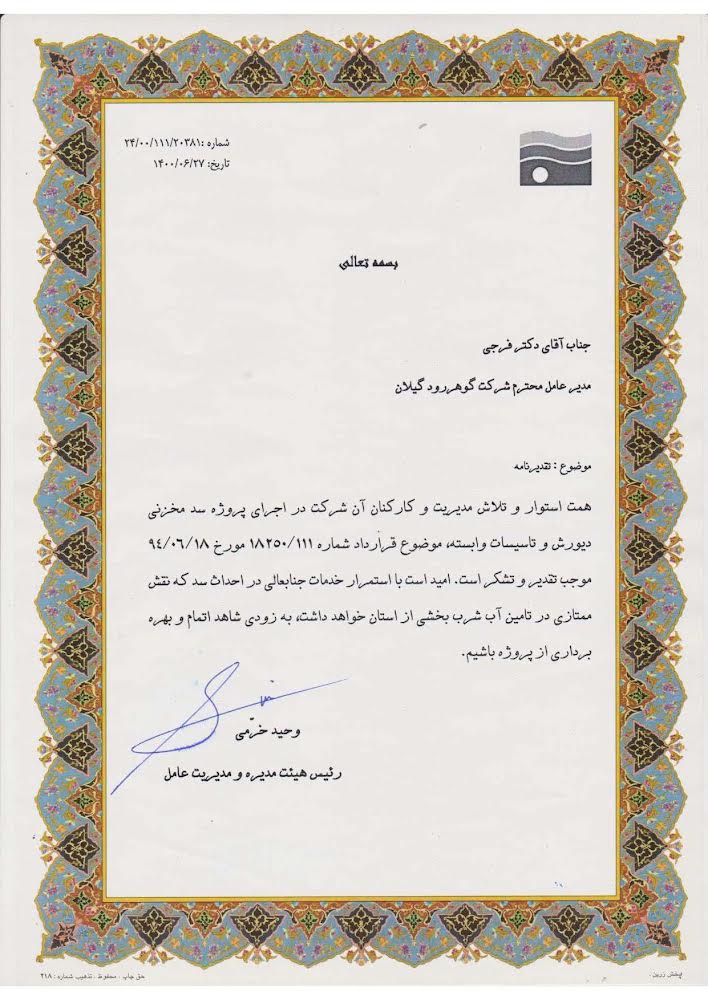 شماره :۲۴/۰۰/۱۱۱/۲۰۳۸۱
تاریخ: ۱۴۰۰/۰۶/۲۷
بسمه تعالی
جناب آقای دکتر فرجی
مدیر عامل محترم شرکت گوهررود گیلان
موضوع : تقدیرنامه
همت استوار و تلاش مدیریت و کارکنان آن شرکت در اجرای پروژه سد مخزنی
دیورش و تاسیسات وابسته، موضوع قرارداد شماره ۱۸۲۵۰/۱۱۱ مورخ ۹۴/۰۶/۱۸
موجب تقدیر و تشکر است. امید است با استمرار خدمات جنابعالی در احداث سد که نقش
ممتازی در تامین آب شرب بخشی از استان خواهد داشت، به زودی شاهد اتمام و بهره
برداری از پروژه باشیم.
وحید خرّمی
رئیس هیئت مدیره و مدیریت عامل
پخش زرین .
حق چاپ . محفوظ . تذهیب شماره : ۲۱۸